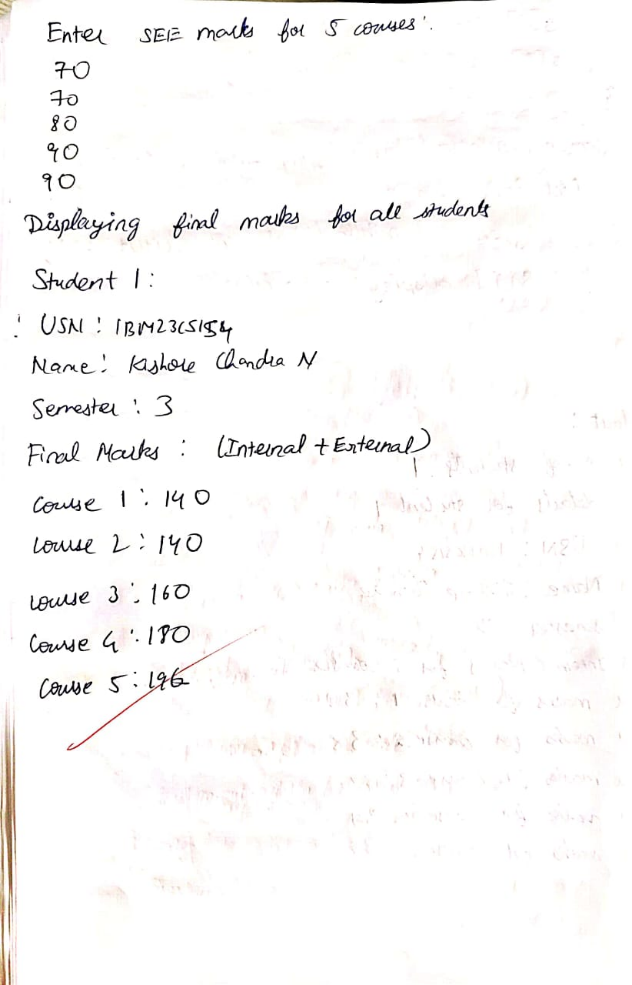 Enter SEE marks for 5 courses:
70
70
80
90
90
Displaying final marks for all students
Student 1:
USN: 1BM23CS154
Name: Kishore Chandra N
Semester: 3
Final Marks: (Internal + External)
Course 1: 140
Course 2: 140
Course 3: 160
Course 4: 180
Course 5: 196